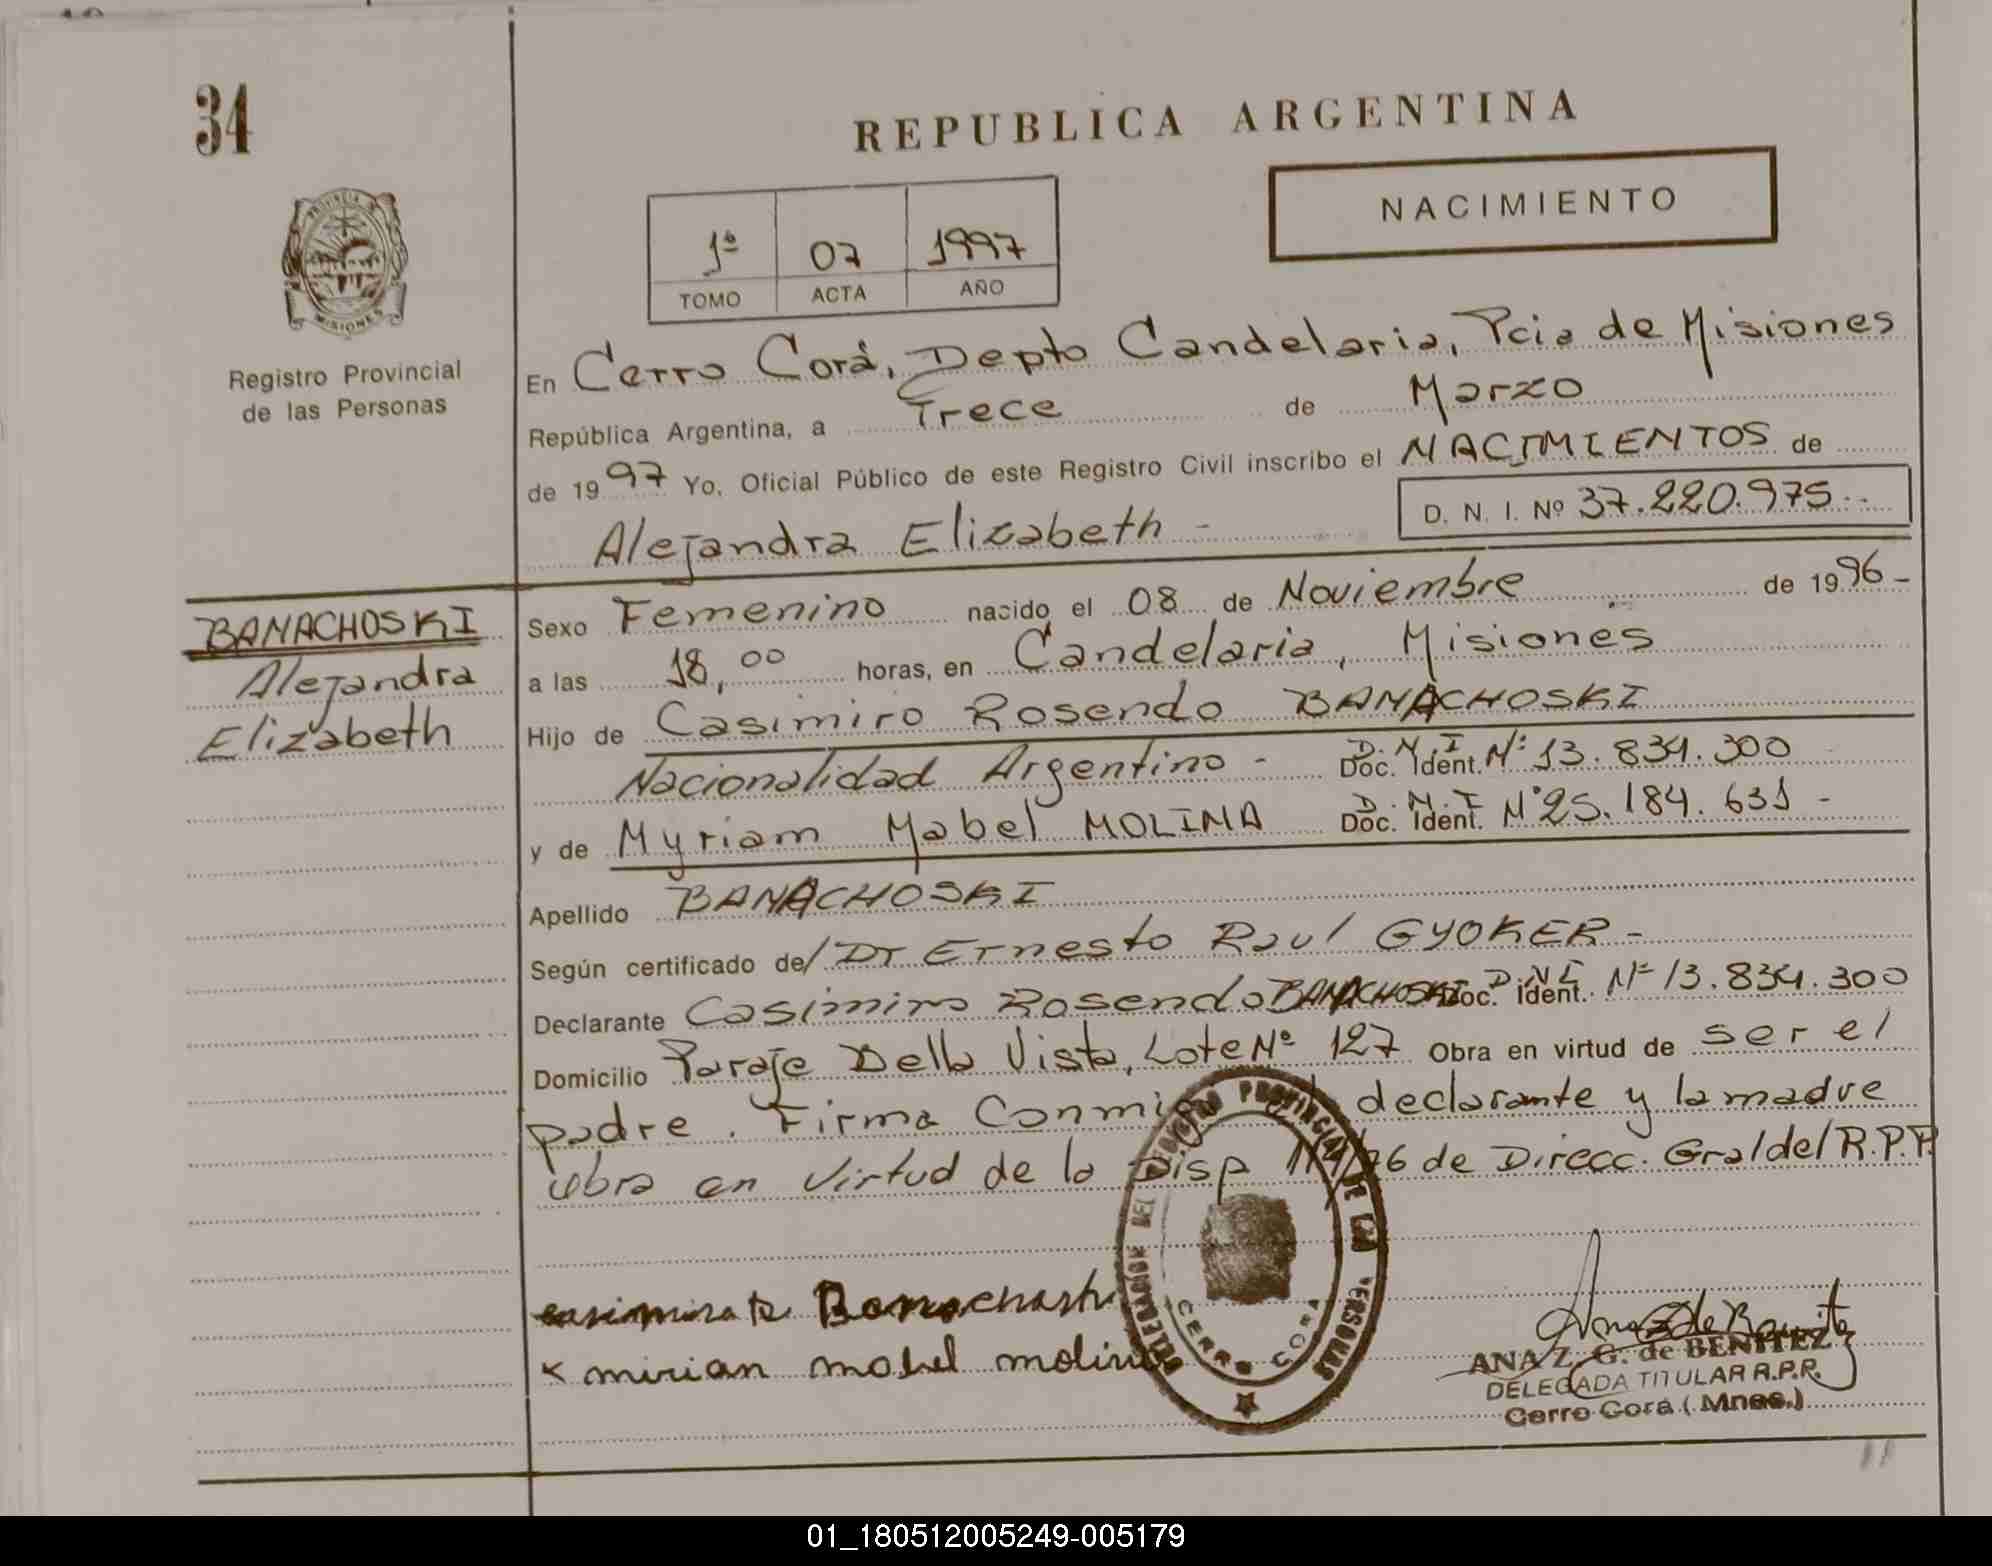 34
REPUBLICA ARGENTINA
NACIMIENTO
1º 07 1997
TOMO ACTA AÑO
PROVINCIA DE
MISIONES
Registro Provincial
de las Personas
En Cerro Corá, Depto Candelaria, Pcia de Misiones
República Argentina, a Trece de Marzo
de 1997 Yo, Oficial Público de este Registro Civil inscribo el NACIMIENTOS de
D. N. I. Nº 37.220.975.-
Alejandra Elizabeth -
BANACHOSKI
Alejandra
Elizabeth
Sexo Femenino nacido el 08 de Noviembre de 1996-
a las 18,00 horas, en Candelaria, Misiones
Hijo de Casimiro Rosendo BANACHOSKI
Nacionalidad Argentino - Doc. Ident. D.N.I Nº 13.834.300
y de Myriam Mabel MOLINA Doc. Ident. D.N.I Nº 25.184.631 -
Apellido BANACHOSKI
Según certificado de/ Dr Ernesto Raul GYOKER -
Declarante Casimiro Rosendo BANACHOSKI Doc. Ident. D.N.I Nº 13.834.300
Domicilio Paraje Bella Vista, Lote Nº 127 Obra en virtud de ser el
padre. Firma Conmigo declarante y la madre
obra en virtud de la Disp /76 de Direcc. Gral del R.P.P.
DELEGACION DEL REGISTRO PROVINCIAL DE LAS PERSONAS
CERRO CORA
mirian mabel molina
ANA Z. G. de BENITEZ
DELEGADA TITULAR R.P.R.
Cerro Corá (Mnes.)
01_180512005249-005179